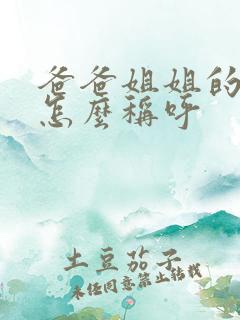 爸爸姐姐的
怎麼稱呼
土豆茄子
未经同意禁止转载